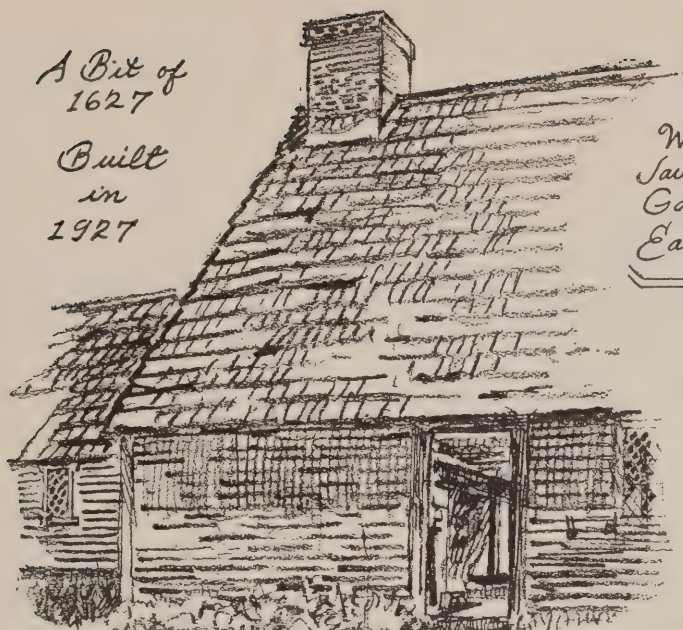 A Bit of
1627
Built
in
1927